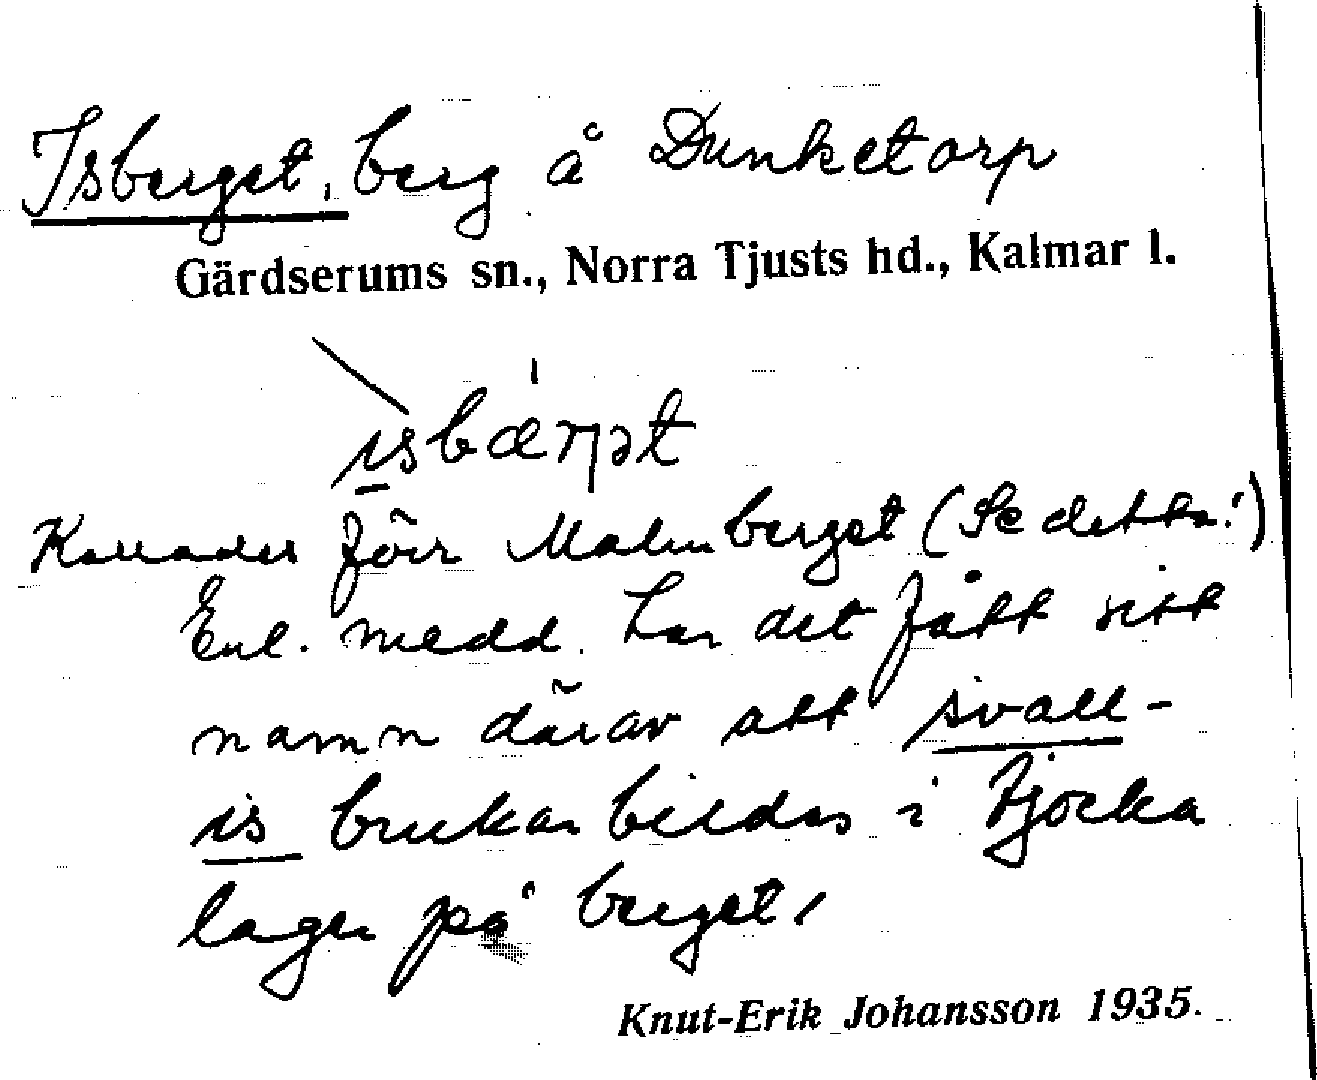 Isberget, berg å Dunketorp
Gärdserums sn., Norra Tjusts hd., Kalmar l.
isbærjət
Kallades förr Malmberget (Se detta!)
Enl. medd. har det fått sitt
namn därav att svall-
is brukar bildas i tjocka
lager på berget,
Knut-Erik Johansson 1935.